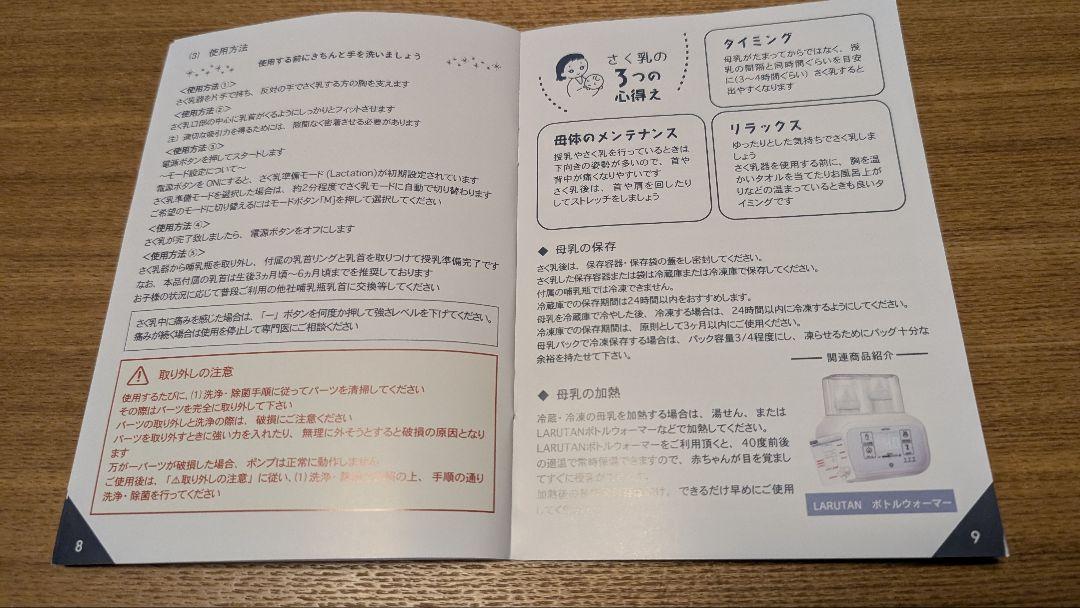 (3) 使用方法
使用する前にきちんと手を洗いましょう
<使用方法①>
さく乳器を片手で持ち、反対の手でさく乳する方の胸を支えます
<使用方法②>
さく乳口部の中心に乳首がくるようにしっかりとフィットさせます
注) 適切な吸引力を得るためには、隙間なく密着させる必要があります
<使用方法③>
電源ボタンを押してスタートします
～モード設定について～
電源ボタンをONにすると、さく乳準備モード (Lactation)が初期設定されています
さく乳準備モードを選択した場合は、約2分程度でさく乳モードに自動で切り替わります
ご希望のモードに切り替えるにはモードボタン「M」を押して選択してください
<使用方法④>
さく乳が完了致しましたら、電源ボタンをオフにします
<使用方法⑤>
さく乳器から哺乳瓶を取り外し、付属の乳首リングと乳首を取りつけて授乳準備完了です
なお、本品付属の乳首は生後3ヵ月頃～6ヵ月頃までを推奨しております
お子様の状況に応じて普段ご利用の他社哺乳瓶乳首に交換等してください
さく乳中に痛みを感じた場合は、「－」ボタンを何度か押して強さレベルを下げてください。
痛みが続く場合は使用を停止して専門医にご相談ください
取り外しの注意
使用するたびに、(1)洗浄・除菌手順に従ってパーツを清掃してください
その際はパーツを完全に取り外して下さい
パーツの取り外しと洗浄の際は、破損にご注意ください
パーツを取り外すときに強い力を入れたり、無理に外そうとすると破損の原因となり
ます
万が一パーツが破損した場合、ポンプは正常に動作しません
ご使用後は、「⚠取り外しの注意」に従い、(1)洗浄・除菌 の上、手順の通り
洗浄・除菌を行ってください
8
さく乳の
3つの
心得え
タイミング
母乳がたまってからではなく、授
乳の間隔と同時間ぐらいを目安
に(3～4時間ぐらい) さく乳すると
出やすくなります
母体のメンテナンス
授乳やさく乳を行っているときは
下向きの姿勢が多いので、首や
背中が痛くなりやすいです
さく乳後は、首や肩を回したり
してストレッチをしましょう
リラックス
ゆったりとした気持ちでさく乳しま
しょう
さく乳器を使用する前に、胸を温
かいタオルを当てたりお風呂上が
りなどの温まっているときも良いタ
イミングです
◆ 母乳の保存
さく乳後は、保存容器・保存袋の蓋をし密封してください。
さく乳した保存容器または袋は冷蔵庫または冷凍庫で保存してください。
付属の哺乳瓶では冷凍できません。
冷蔵庫での保存期間は24時間以内をおすすめします。
母乳を冷蔵庫で冷やした後、冷凍する場合は、24時間以内に冷凍するようにしてください。
冷凍庫での保存期間は、原則として3ヶ月以内にご使用ください。
母乳パックで冷凍保存する場合は、パック容量3/4程度にし、凍らせるためにバッグ十分な
余裕を持たせて下さい。
関連商品紹介
◆ 母乳の加熱
冷蔵・冷凍の母乳を加熱する場合は、湯せん、または
LARUTANボトルウォーマーなどで加熱してください。
LARUTANボトルウォーマーをご利用頂くと、40度前後
の適温で常時保温できますので、赤ちゃんが目を覚まし
てすぐに授
加熱後の できるだけ早めにご使用
して
LARUTAN ボトルウォーマー
9